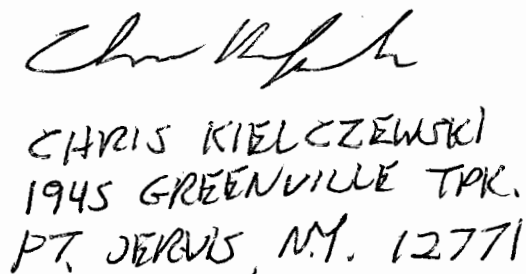 CHRIS KIELCZEWSKI
1945 GREENVILLE TPK.
PT. JERVIS, N.Y. 12771